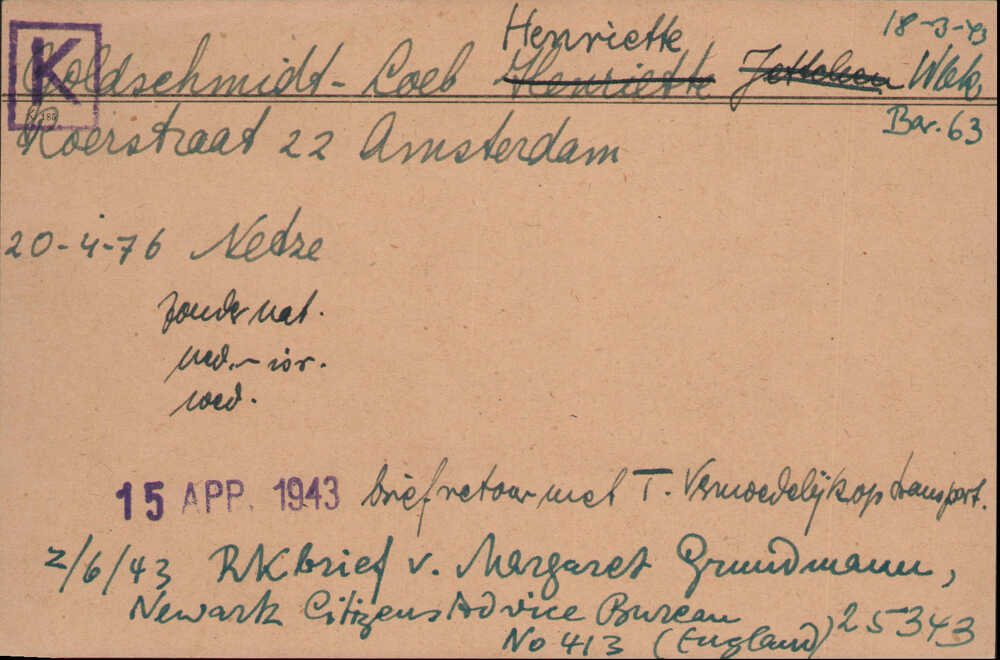 Henriette 18-3-43
K Goldschmidt - Loeb Henriette Wbk
K 185 Bar. 63
Roerstraat 22 Amsterdam
20-4-76 Nedze
zonder nat.
ned.-isr.
wed.
15 APP. 1943 brief retour met T. Vermoedelijk op transport.
2/6/43 RK brief v. Margaret Grundmann,
Newark Citizens Advice Bureau 25343
No 413 (England)